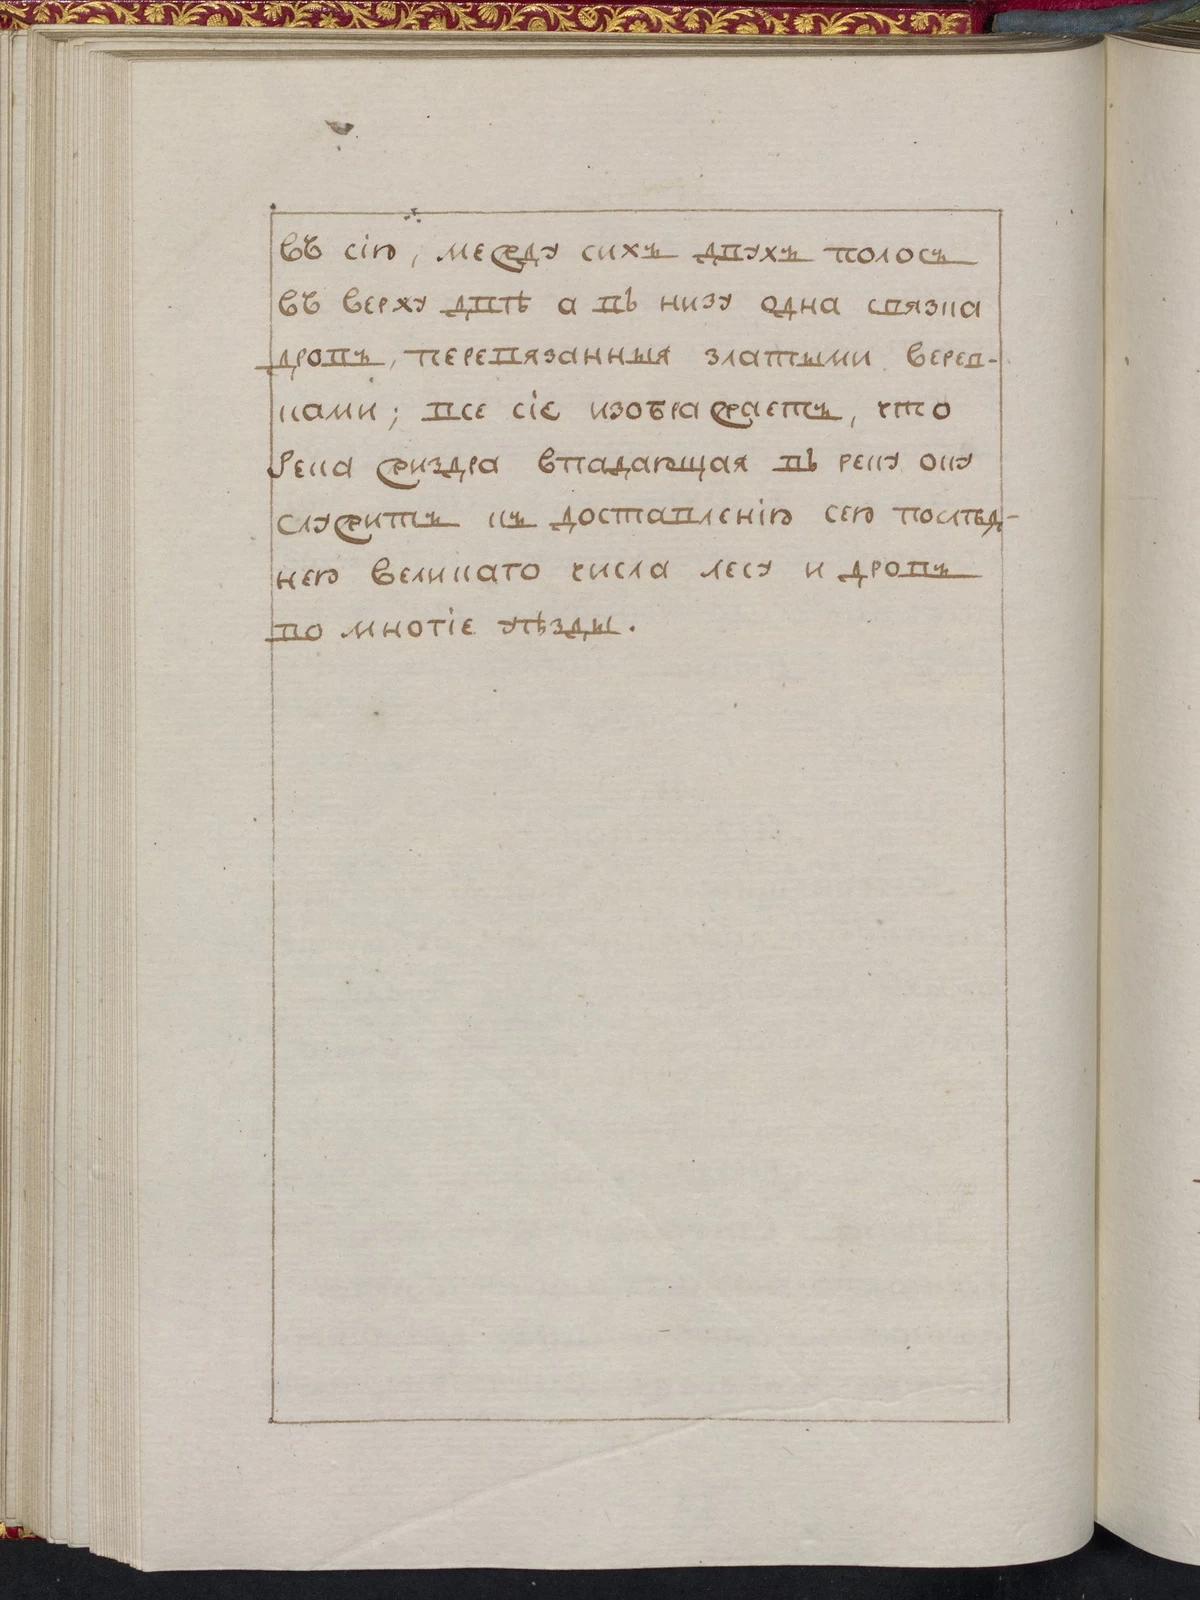 въ сію, между сихъ двухъ полосъ
въ верху двѣ а въ низу одна связка
дровъ, перевязанныя златыми верев-
ками; все сіе изображаетъ, что
Река Жиздра впадающая въ реку оку
служитъ къ доставленію сею послѣд-
нею великаго числа лесу и дровъ
во многіе уѣзды.